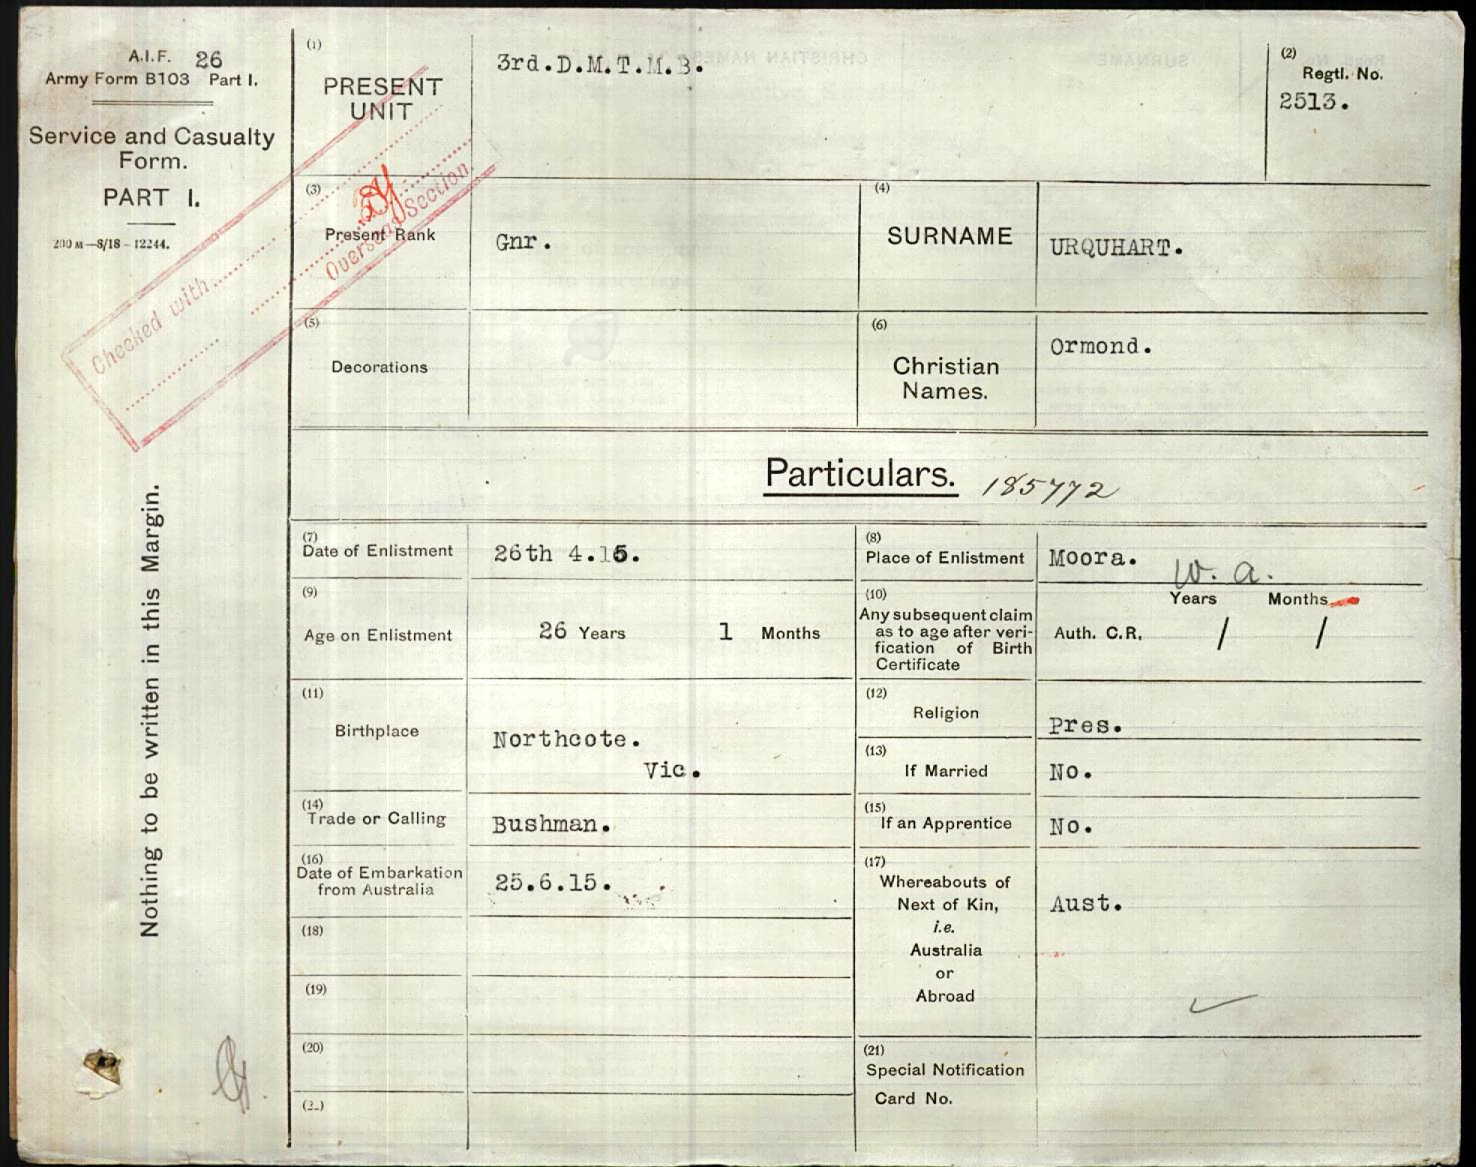 A.I.F. 26
Army Form B103 Part I.
Service and Casualty
Form.
PART I.
200 M—8/18—12244.
Checked with
Overseas Section
Nothing to be written in this Margin.
(1)
PRESENT
UNIT
3rd.D.M.T.M.B.
(2)
Regtl. No.
2513.
(3)
Present Rank
Gnr.
(4)
SURNAME
URQUHART.
(5)
Decorations
(6)
Christian
Names.
Ormond.
Particulars. 185772
(7)
Date of Enlistment
26th 4.15.
(8)
Place of Enlistment
Moora. W. A.
(9)
Age on Enlistment
26 Years 1 Months
(10)
Any subsequent claim
as to age after veri-
fication of Birth
Certificate
Years Months
Auth. C.R. / /
(11)
Birthplace
Northcote.
Vic.
(12)
Religion
Pres.
(13)
If Married
No.
(14)
Trade or Calling
Bushman.
(15)
If an Apprentice
No.
(16)
Date of Embarkation
from Australia
25.6.15.
(17)
Whereabouts of
Next of Kin,
i.e.
Australia
or
Abroad
Aust.
(18)
(19)
(20)
(21)
Special Notification
Card No.